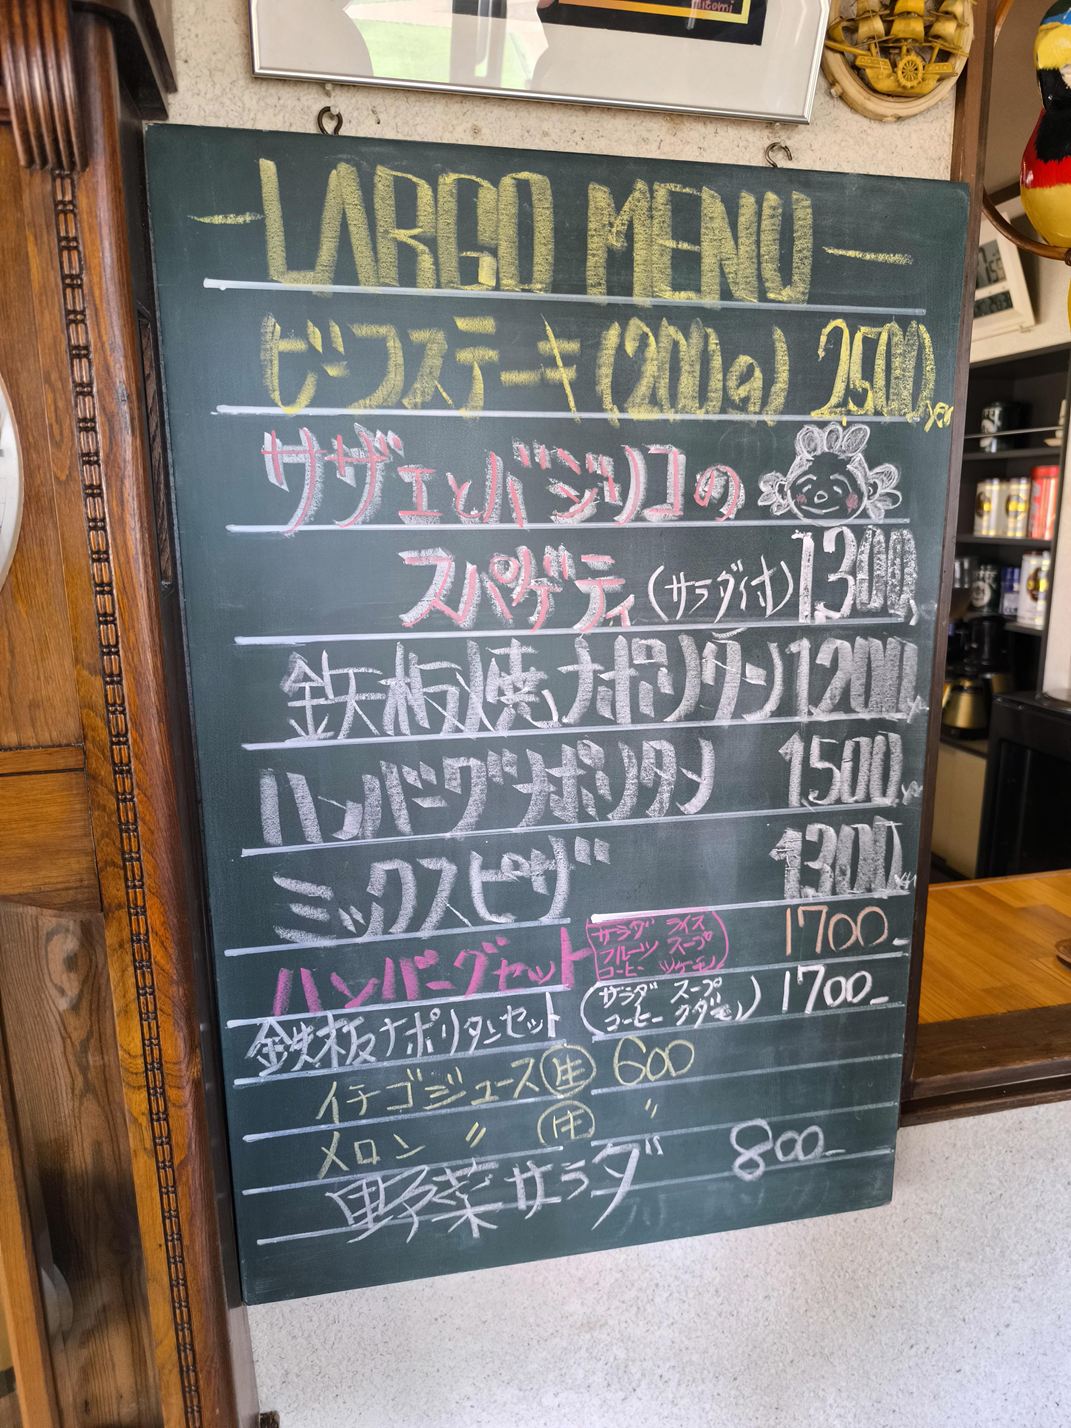 Hitomi
-LARGO MENU-
ビーフステーキ(200g) 2500yen
サザエとバジリコの
スパゲティ(サラダ付)1,300
鉄板焼ナポリタン1,200
ハンバーグナポリタン 1500yen
ミックスピザ 1300yen
ハンバーグセット サラダ ライス 1700-
フルーツ スープ
コーヒー ツケモノ
鉄板ナポリタンセット (サラダ スープ 1700-
コーヒー クダモノ)
イチゴジュース 生 600
メロン 〃 生 〃
野菜サラダ 800-